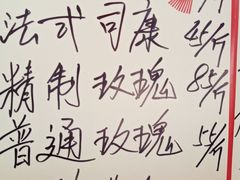 法式司康 45/斤
精制玫瑰 85/斤
普通玫瑰 55/斤